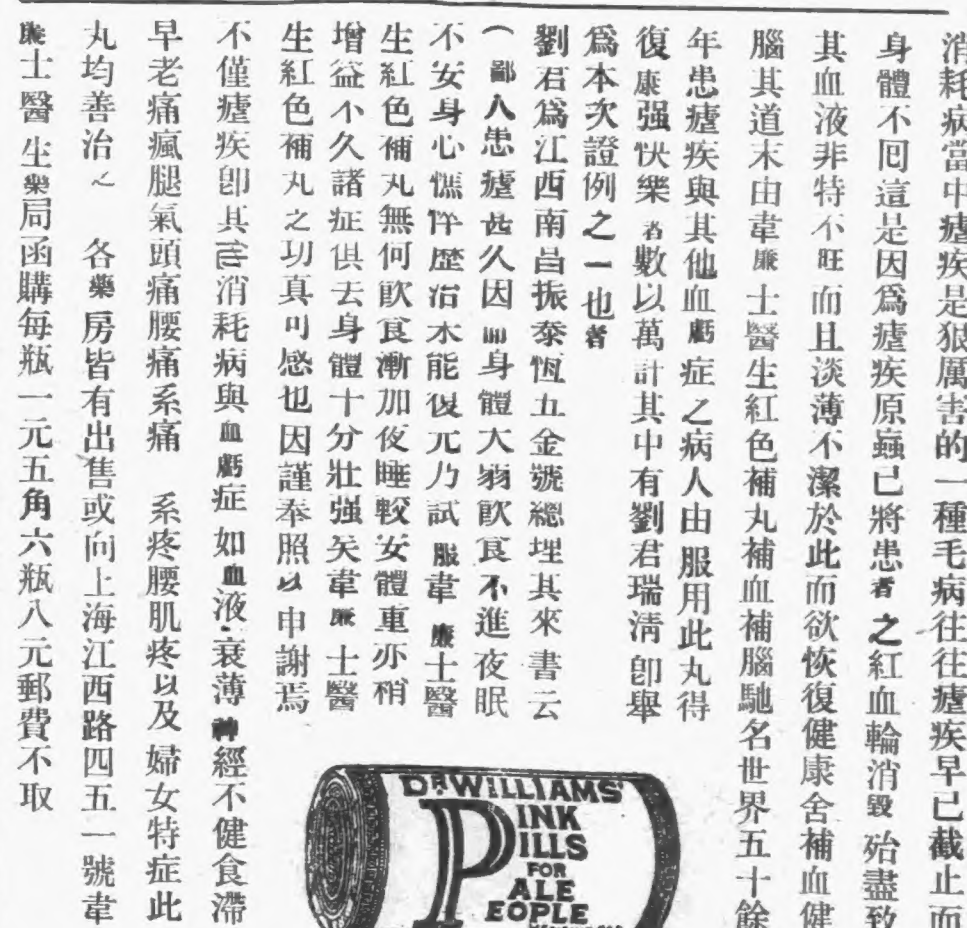 消耗病當中瘧疾是狠厲害的一種毛病往往瘧疾早已截止而
身體不囘這是因爲瘧疾原蟲已將患者之紅血輪消毀殆盡致
其血液非特不旺而且淡薄不潔於此而欲恢復健康舍補血健
腦其道末由韋廉士醫生紅色補丸補血補腦馳名世界五十餘
年患瘧疾與其他血虧症之病人由服用此丸得
復康强快樂者數以萬計其中有劉君瑞淸卽舉
爲本次證例之一也者
劉君爲江西南昌振泰恆五金號總理其來書云
(鄙人患瘧甚久因而身體大弱飮食不進夜眠
不安身心憔悴歷治未能復元乃試服韋廉士醫
生紅色補丸無何飮食漸加夜睡較安體重亦稍
增益不久諸症俱去身體十分壯强矣韋廉士醫
生紅色補丸之功真可感也因謹奉照以申謝焉
不僅瘧疾卽其他消耗病與血虧症如血液衰薄神經不健食滯
早老痛瘋腿氣頭痛腰痛系痛 系疼腰肌疼以及婦女特症此
丸均善治之 各藥房皆有出售或向上海江西路四五一號韋
廉士醫生藥局函購每瓶一元五角六瓶八元郵費不取
DR WILLIAMS'
PINK
PILLS
FOR
PALE
PEOPLE